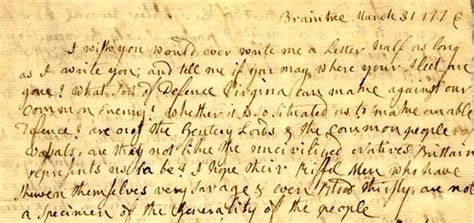 Braintree March 31 1776
I wish you would ever write me a Letter half as long
as I write you; and tell me if you may where your Fleet are
gone? What sort of Defence Virginia can make against our
common Enemy? Whether it is so situated as to make an able
Defence? are not the Gentery Lords & the common people
vasals, are they not like the uncivilized natives Brittain
represents us to be? I hope their Riffel Men who have
shewen themselves very savage & even Blood thirsty; are not
a specimen of the Generality of the people